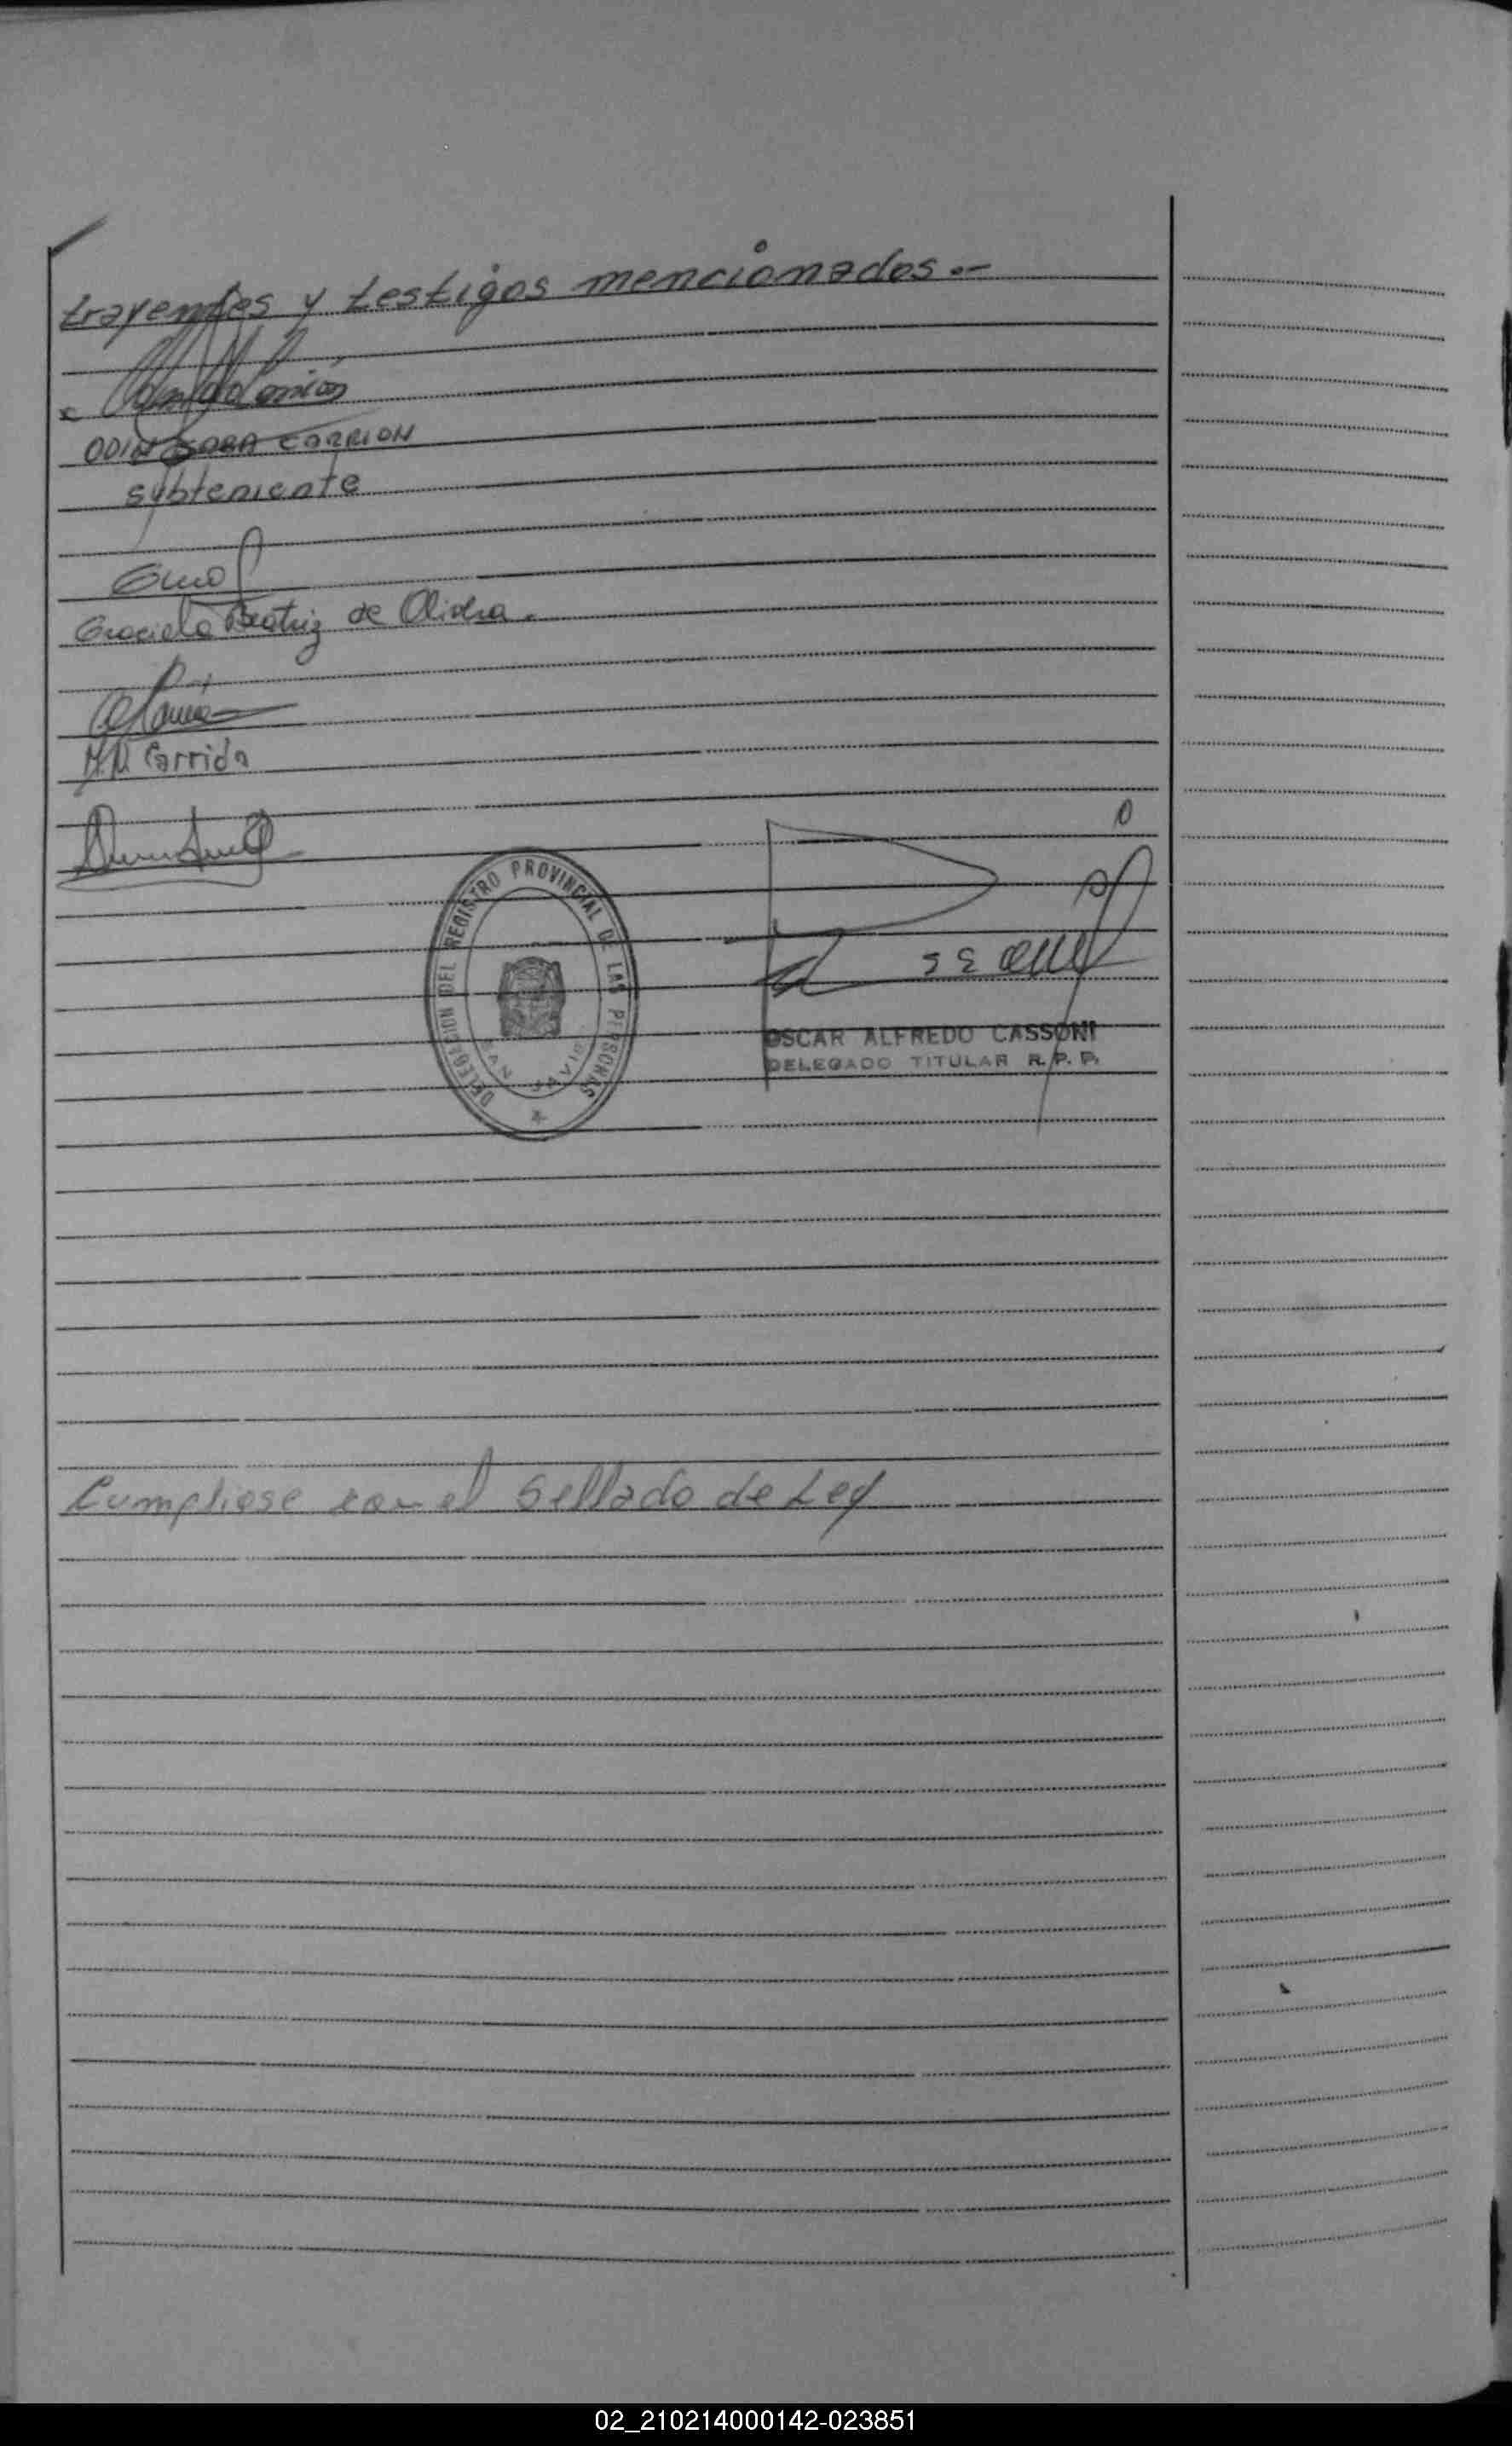 trayentes y testigos mencionados.-
ODIN SABA CARRION
subteniente
Graciela Beatriz de Olivera.
M.N. Carrido
DELEGACION DEL REGISTRO PROVINCIAL DE LAS PERSONAS
SAN JAVIER
OSCAR ALFREDO CASSONI
DELEGADO TITULAR R.P.P.
Cumpliose con el Sellado de Ley
02_210214000142-023851